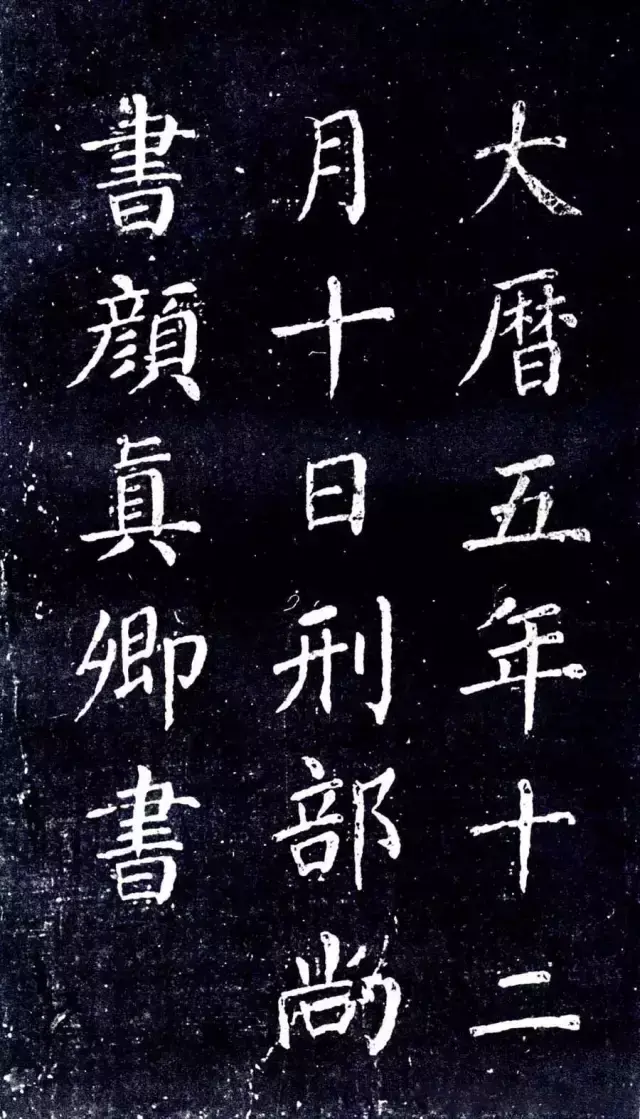 大暦五年十二
月十日刑部尚
書顔真卿書